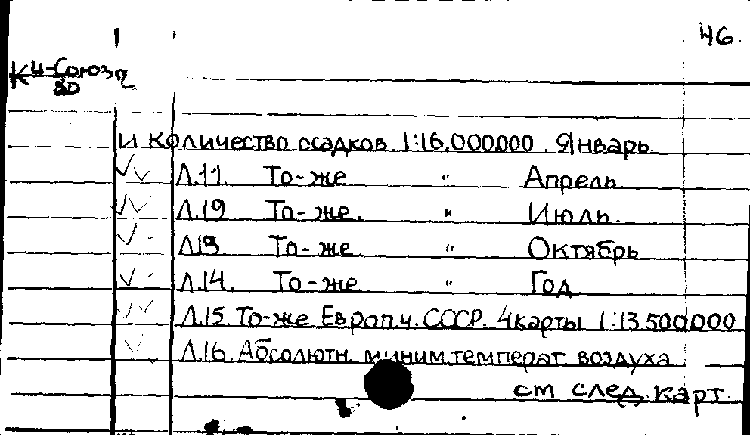 46.
К-4-Союза
80
и количество осадков 1:16,000000. Январь
Л.11. То-же " Апрель
Л.19 То-же. " Июль.
Л.13 То-же " Октябрь
Л.14. То-же " Год
Л.15. То-же Европ.ч. СССР. 4карты 1:13.500000
Л.16. Абсолютн. миним.температ воздуха
см след. карт.